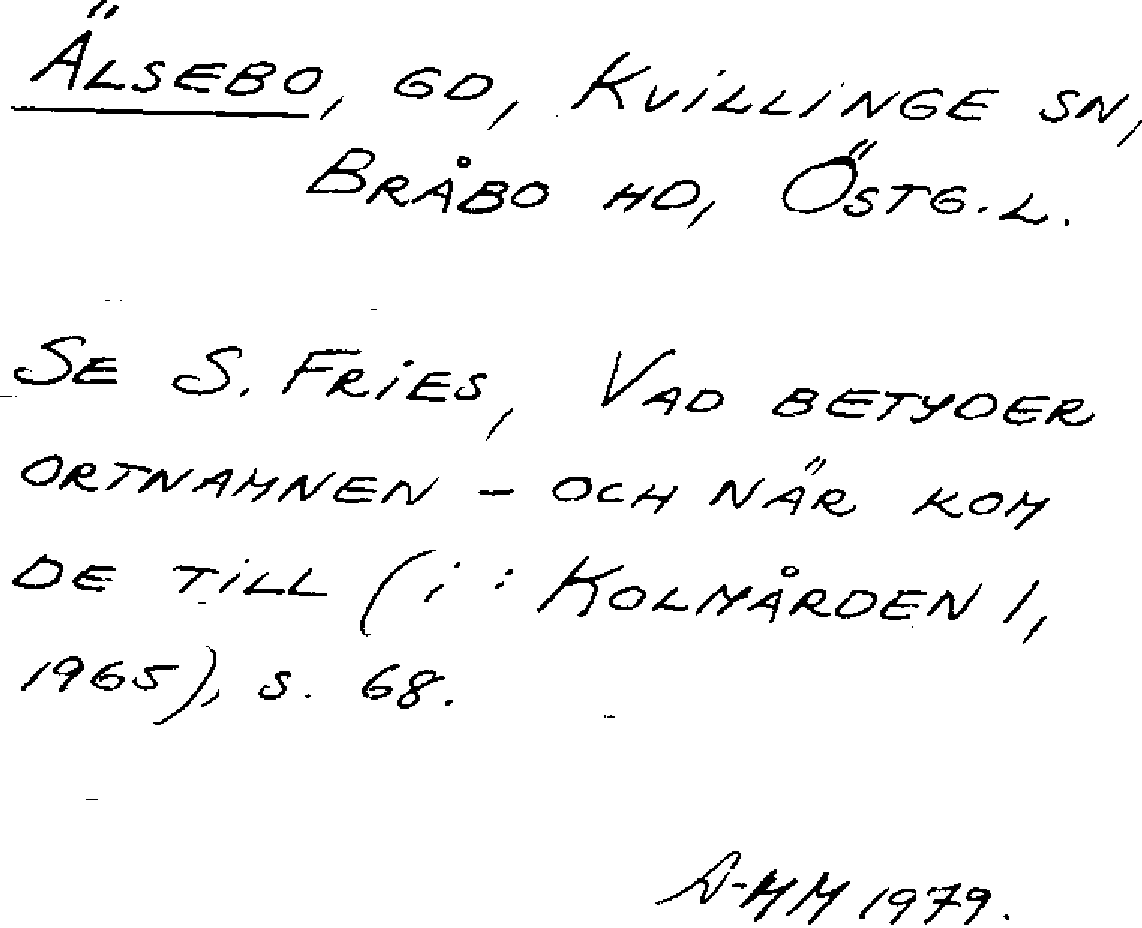 ÄLSEBO, GD, KVILLINGE SN,
BRÅBO HD, ÖSTG.L.
SE S. FRIES, VAD BETYDER
ORTNAMNEN - OCH NÄR KOM
DE TILL (i: KOLMÅRDEN 1,
1965), S. 68.
1979.